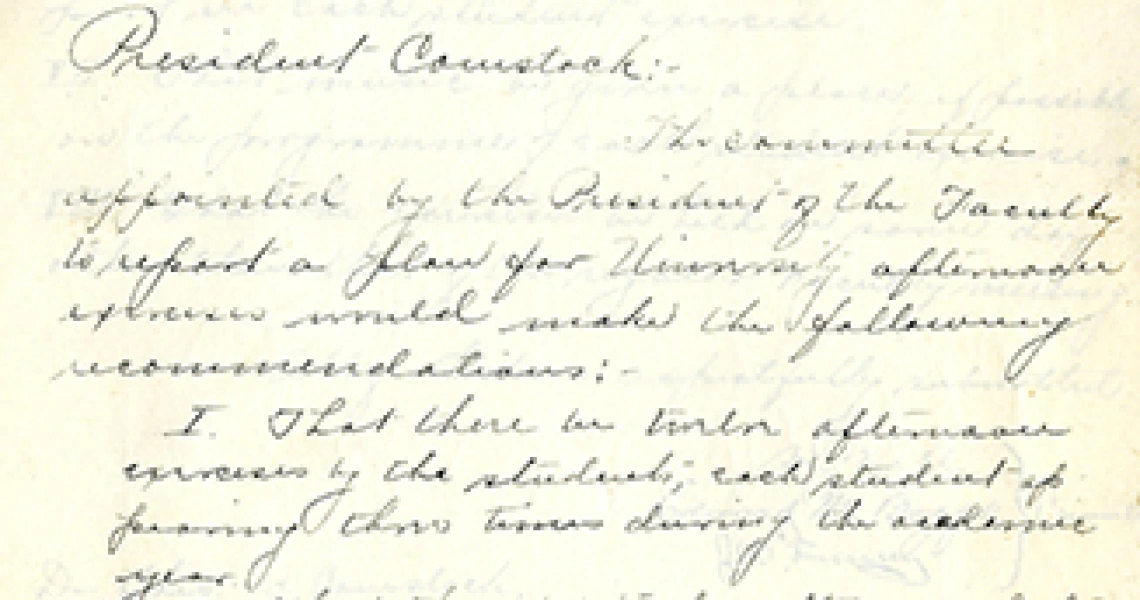 President Comstock:-
The committee
appointed by the President of the Faculty
to report a plan for University afternoon
exercises would make the following
recommendations:-
I. That there be twelve afternoon
exercises by the students; each student ap-
pearing three times during the academic
year.